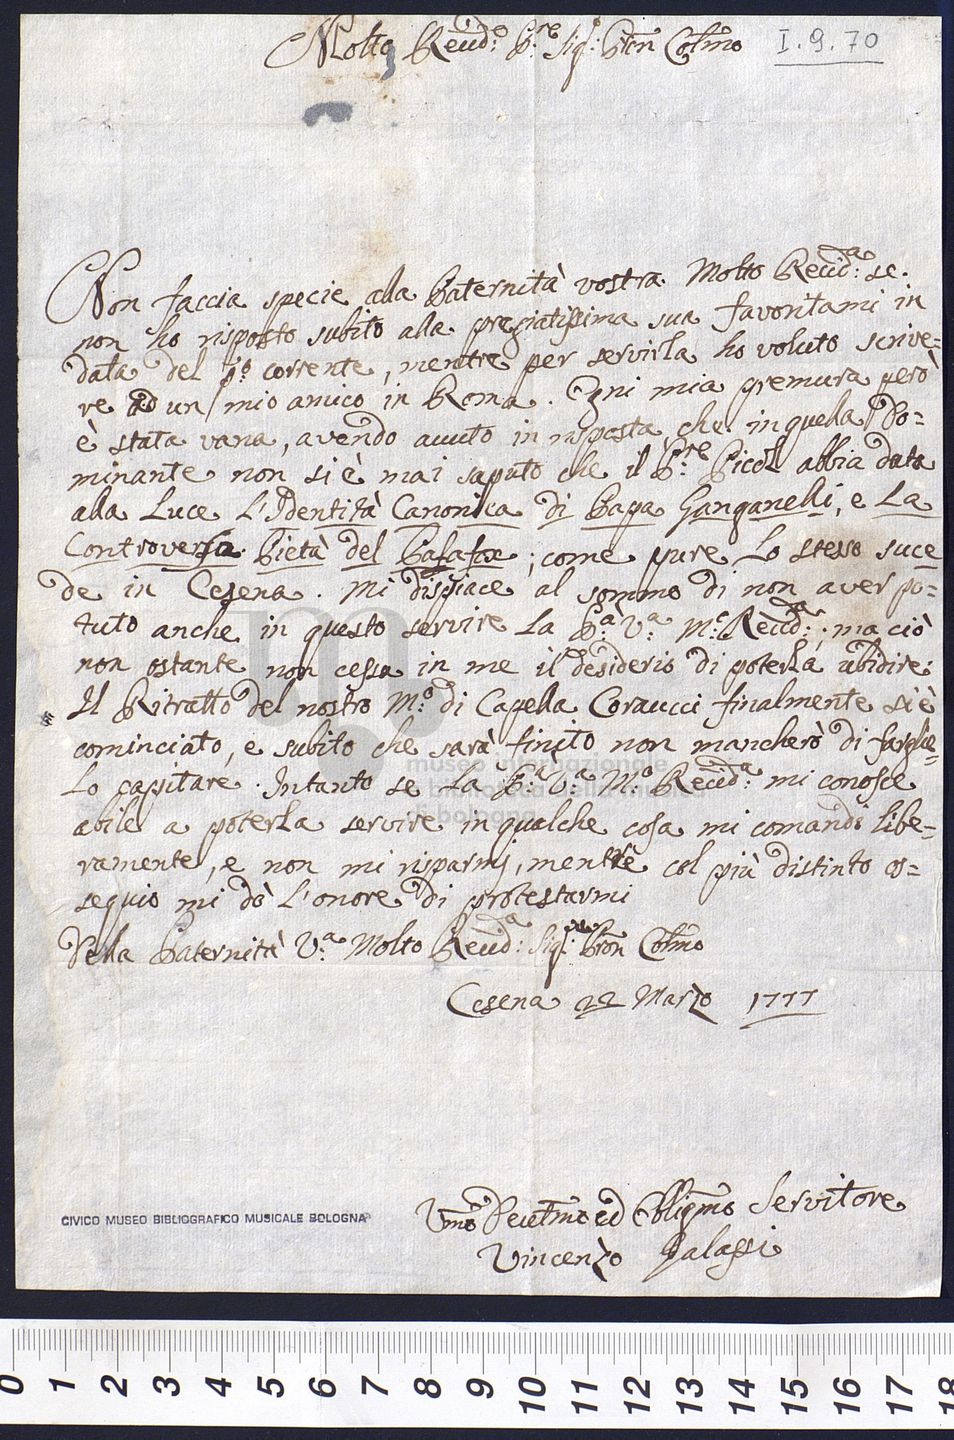 Molto Reud:o P:re Sig:r Pron Colmo
I.9.70
Non faccia specie alla Paternità vostra Molto Reud:a se
non ho risposto subito alla pregiatissima sua favoritami in
data del po: corrente, mentre per servirla ho voluto scrive=
re ad un mio amico in Roma. Ogni mia premura però
è stata vana, avendo avuto in risposta che in quella Do=
minante non si è mai saputo che il P:re abbia data
alla Luce L'Identità Canonica di Papa Ganganelli, e La
Controversa Pietà del Palafox; come pure Lo stesso succe
de in Cesena. Mi dispiace al sommo di non aver po=
tuto anche in questo servire La P:a V:a M:o Reud:a; ma ciò
non ostante non cessa in me il desiderio di poterla ubidire:
Il Ritratto del nostro M:o di Capella Coraucci finalmente si è
cominciato, e subito che sarà finito non mancherò di farglie=
Lo capitare. Intanto se La P:a V:a M:o Reud:a mi conosce
abile a poterla servire in qualche cosa mi comandi libe=
ramente, e non mi risparmj, mentrè col più distinto os=
sequio mi dò L'onore di protestarmi
Della Paternità V:a Molto Reud:a Sig:r Pron Colmo
Cesena 22 Marzo 1777
Umo Devotmo ed Obligmo Servitore
Vincenzo Galassi
CIVICO MUSEO BIBLIOGRAFICO MUSICALE BOLOGNA
museo internazionale
e biblioteca della musica
di bologna
0 1 2 3 4 5 6 7 8 9 10 11 12 13 14 15 16 17 18